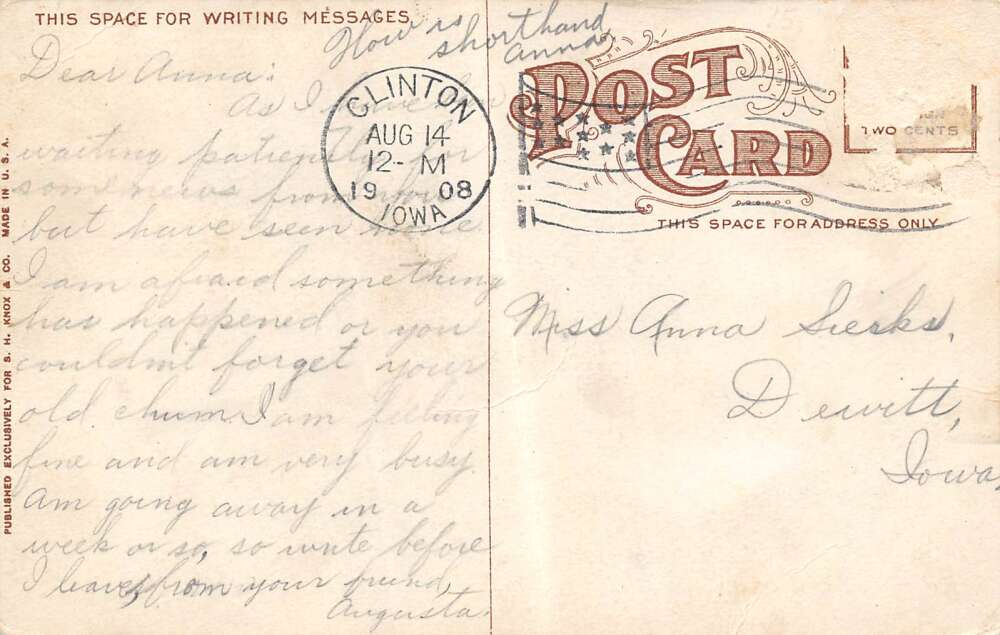 THIS SPACE FOR WRITING MESSAGES
How is
shorthand
Anna
Dear Anna:
As I have been
waiting patiently for
some news from you
but have seen none
I am afraid something
has happened or you
couldn't forget your
old chum. I am feeling
fine and am very busy
Am going away in a
week or so, so write before
I leave, from your friend,
Augusta.
CLINTON
AUG 14
12- M
19 08
IOWA
POST
CARD
TWO CENTS
THIS SPACE FOR ADDRESS ONLY
Miss Anna Sierks,
Dewitt,
Iowa.
PUBLISHED EXCLUSIVELY FOR S. H. KNOX & CO. MADE IN U. S. A.